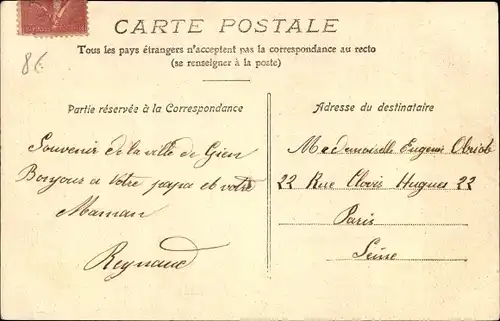 CARTE POSTALE
Tous les pays étrangers n'acceptent pas la correspondance au recto
(se renseigner à la poste)
86
Partie réservée à la Correspondance
Souvenir de la ville de Gien
Bonjour a Votre papa et votre
Maman
Reynaud
Adresse du destinataire
Mademoiselle Eugenie
22 Rue Clovis Hugues 22
Paris
Seine